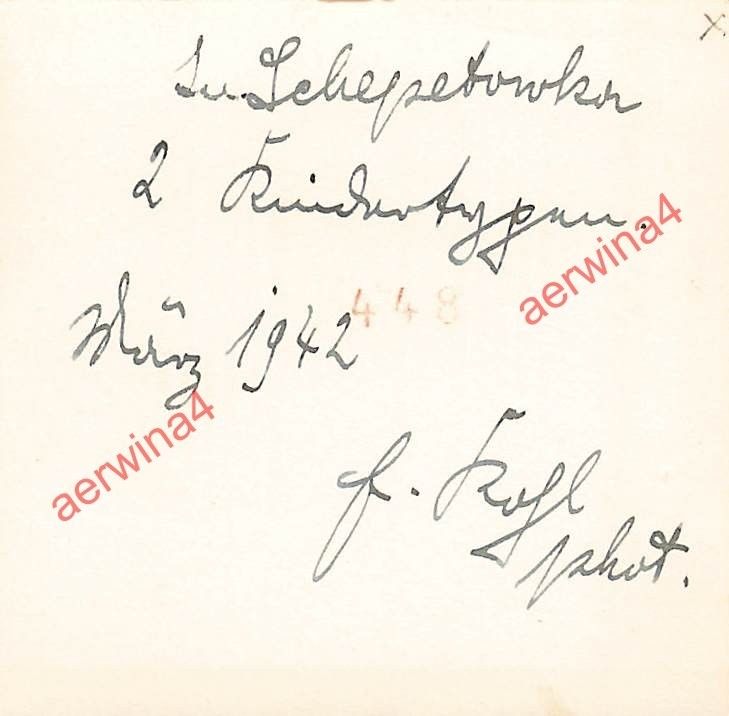 x
In Schepetowka
2 Kindertypen.
448
aerwina4
März 1942
aerwina4
f. Kogl
phot.